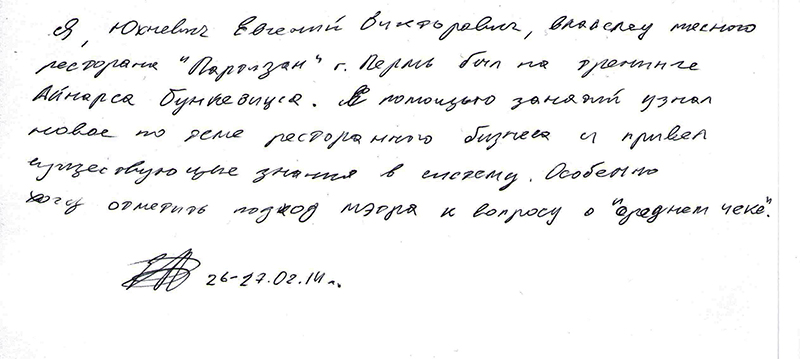 Я, Юхневич Евгений Викторович, владелец мясного
ресторана "Партизан" г. Пермь был на тренинге
Айнарса Бункевица. С помощью занятий узнал
новое по теме ресторанного бизнеса и привел
существующие знания в систему. Особенно
хочу отметить подход мэтра к вопросу о "среднем чеке".
26-27.02.14 г.